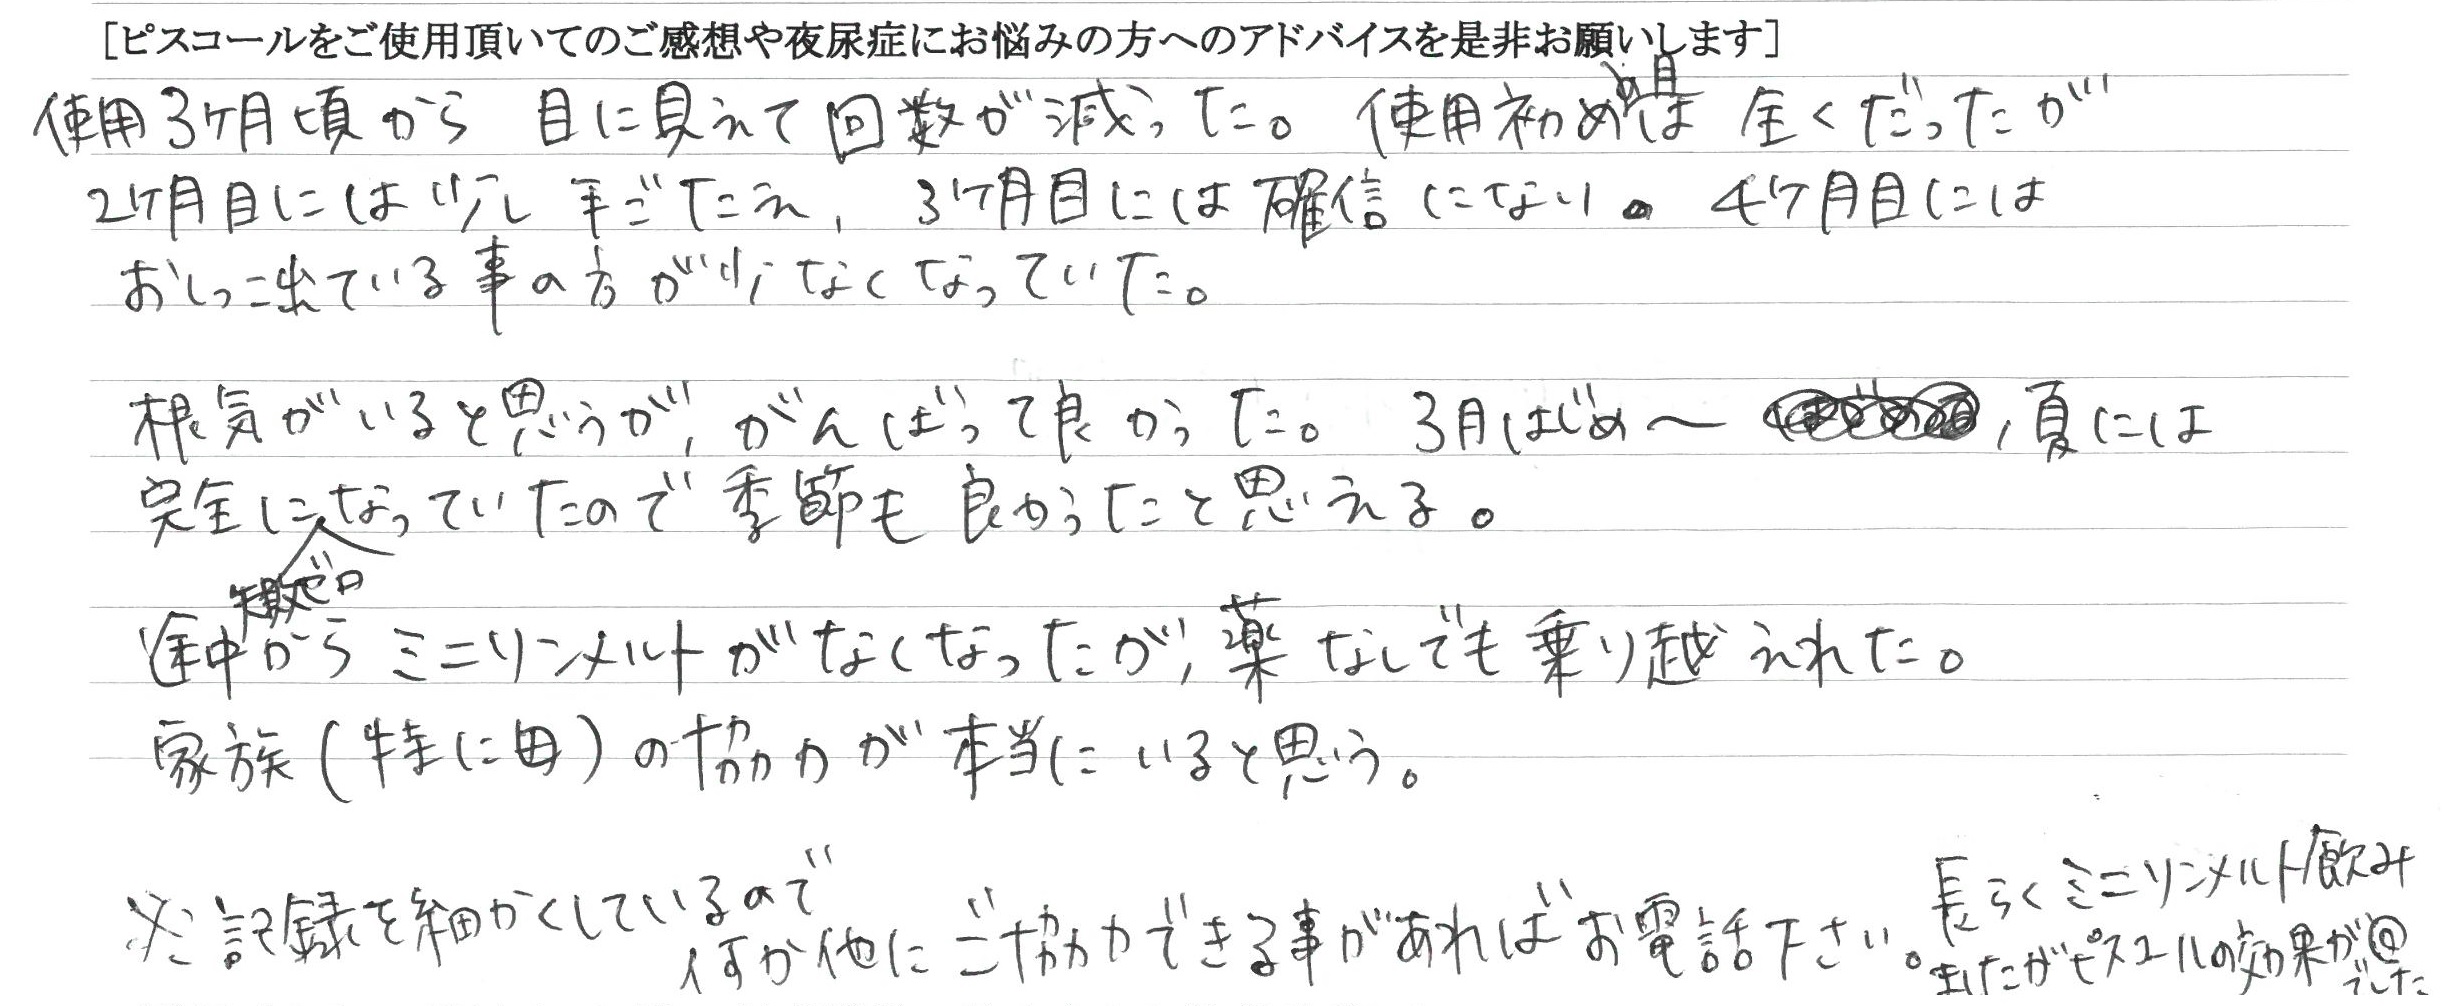 [ピスコールをご使用頂いてのご感想や夜尿症にお悩みの方へのアドバイスを是非お願いします]
使用3ヶ月頃から 目に見えて回数が減った。 使用初めの月は 全くだったが
2ヶ月目には少し 手ごたえ, 3ヶ月目には確信になり。 4ヶ月目には
おしっこ出ている事の方が少なくなっていた。
根気がいると思うが, がんばって良かった。 3月はじめ〜 , 夏には
完全に失敗ゼロなっていたので 季節も良かったと思える。
途中から ミニリンメルトがなくなったが, 薬なしでも乗り越えれた。
家族(特に母)の協力が 本当にいると思う。
※記録を細かくしているので
何か他にご協力できる事があればお電話下さい。
長らくミニリンメルト飲み
ましたがピスコールの効果が
でした